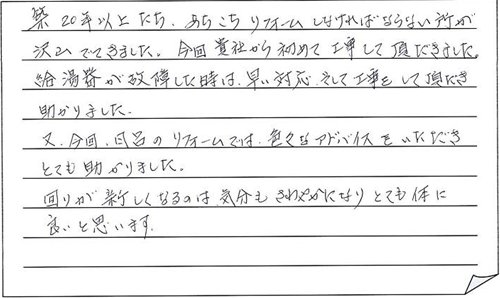 築20年以上たち、あちこちリフォームしなければならない所が
沢山でてきました。今回貴社から初めて工事して頂だきました。
給湯器が故障した時は、早い対応、そして工事をして頂だき
助かりました。
又、今回、風呂のリフォームでは、色々なアドバイスをいただき
とても助かりました。
回りが新しくなるのは、気分もさわやかになりとても体に
良いと思います。